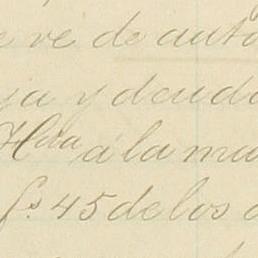 e ve de auto
ya y deuda
Hda á la mu
fs 45 de los a